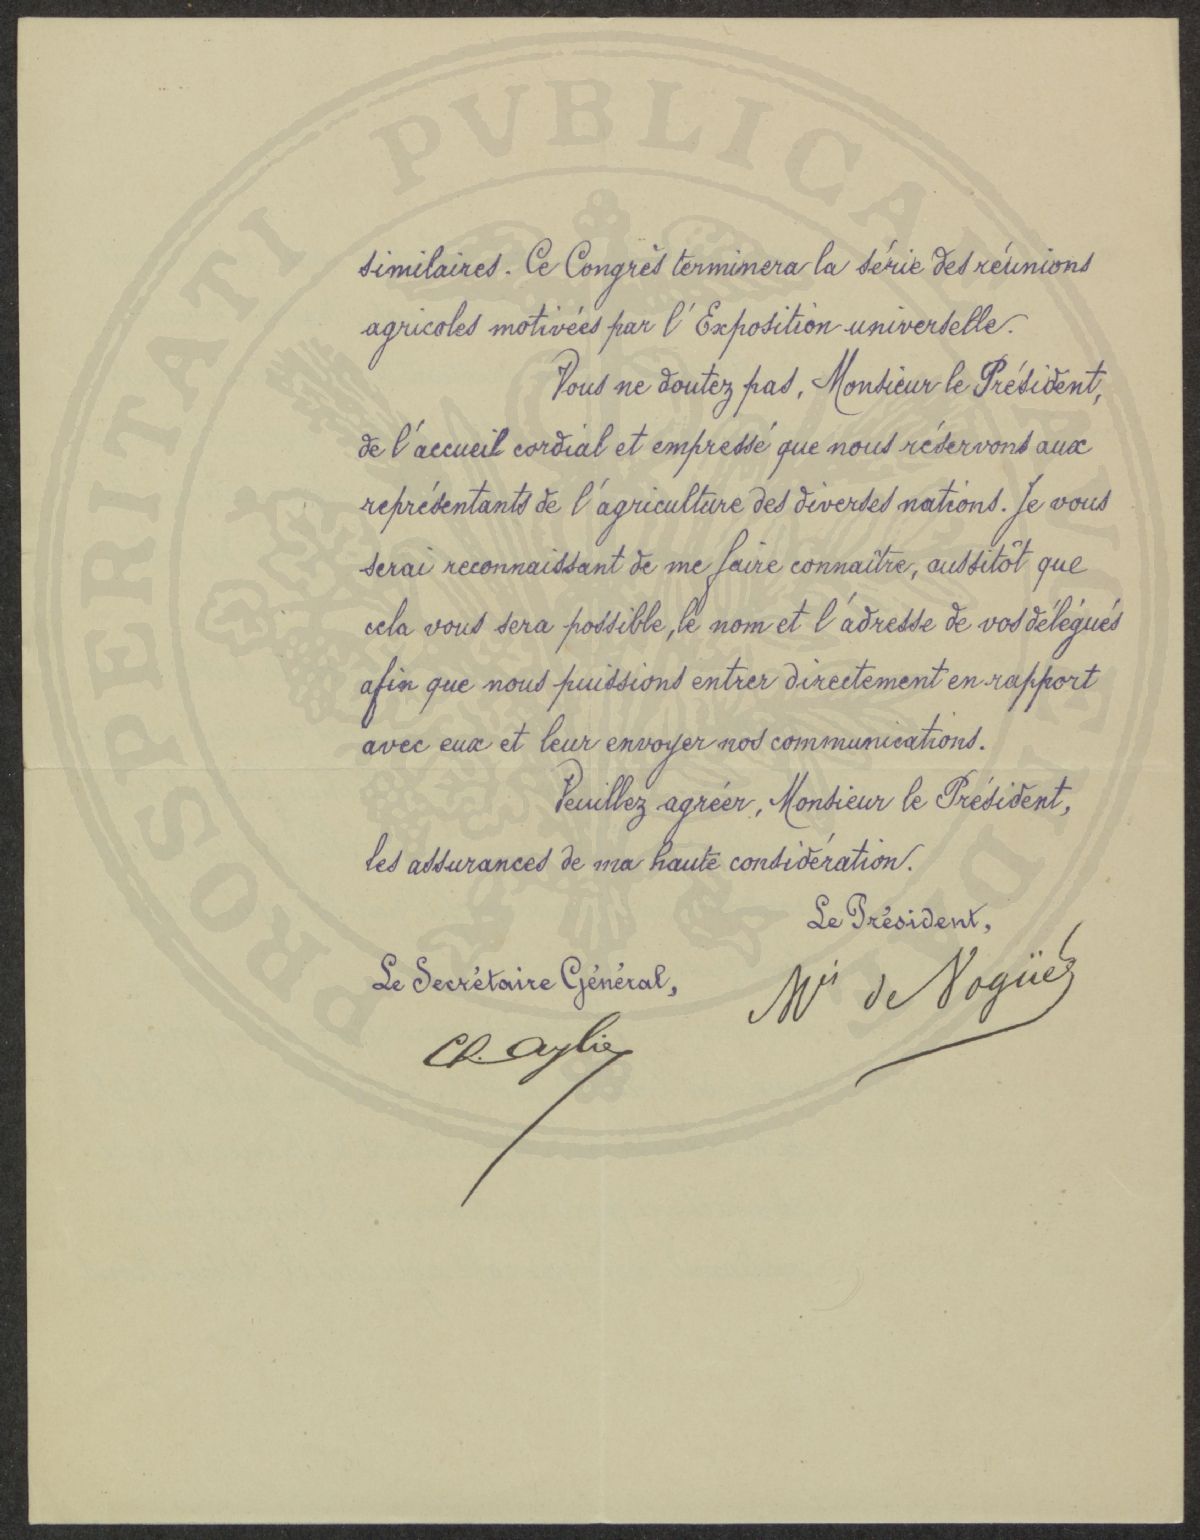 PROSPERITATI PUBLICAE AUGENDAE
similaires. Ce Congrès terminera la série des réunions
agricoles motivées par l'Exposition universelle.
Vous ne doutez pas, Monsieur le Président,
de l'accueil cordial et empressé que nous réservons aux
représentants de l'agriculture des diverses nations. Je vous
serai reconnaissant de me faire connaître, aussitôt que
cela vous sera possible, le nom et l'adresse de vos délégués
afin que nous puissions entrer directement en rapport
avec eux et leur envoyer nos communications.
Veuillez agréer, Monsieur le Président,
les assurances de ma haute considération.
Le Président,
Mis de Vogüé
Le Secrétaire Général,
Ch. Aylies